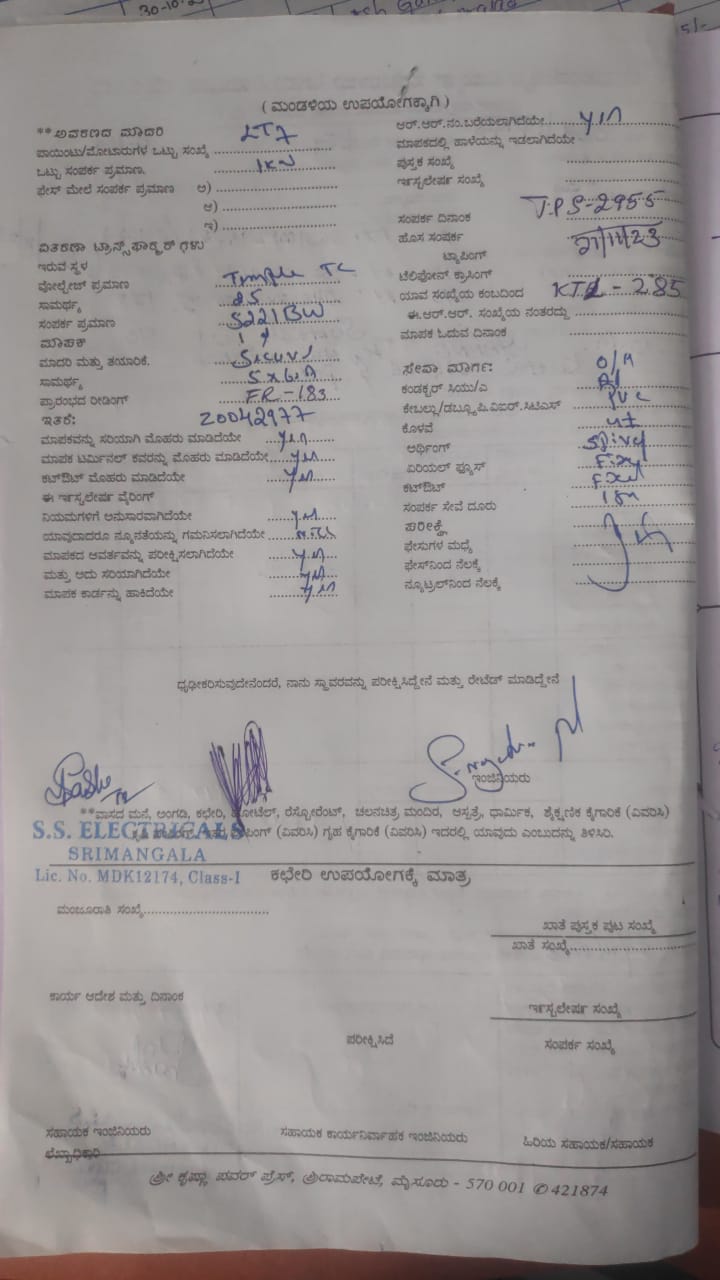 30-10-2
5/-
( ಮಂಡಳಿಯ ಉಪಯೋಗಕ್ಕಾಗಿ )
**ಆವರಣದ ಮಾದರಿ LT7
ಪಾಯಿಂಟು/ಮೋಟಾರುಗಳ ಒಟ್ಟು ಸಂಖ್ಯೆ
ಒಟ್ಟು ಸಂಪರ್ಕ ಪ್ರಮಾಣ. 1KW
ಫೇಸ್ ಮೇಲೆ ಸಂಪರ್ಕ ಪ್ರಮಾಣ ಅ)
ಆ)
ಇ)
ವಿತರಣಾ ಟ್ರಾನ್ಸ್‌ಫಾರ್ಮರ್‌ಗಳು
ಇರುವ ಸ್ಥಳ
ವೋಲ್ಟೇಜ್ ಪ್ರಮಾಣ Temple TC
ಸಾಮರ್ಥ್ಯ 25
ಸಂಪರ್ಕ ಪ್ರಮಾಣ
ಮಾಪಕ
ಮಾದರಿ ಮತ್ತು ತಯಾರಿಕೆ.
ಸಾಮರ್ಥ್ಯ
ಪ್ರಾರಂಭದ ರೀಡಿಂಗ್ FR-183
ಇತರೆ: 20042977
ಮಾಪಕವನ್ನು ಸರಿಯಾಗಿ ಮೊಹರು ಮಾಡಿದೆಯೇ
ಮಾಪಕ ಟರ್ಮಿನಲ್ ಕವರನ್ನು ಮೊಹರು ಮಾಡಿದೆಯೇ
ಕಟ್‌ಔಟ್ ಮೊಹರು ಮಾಡಿದೆಯೇ
ಈ ಇನ್ಸ್ಟಲೇಷನ ವೈರಿಂಗ್
ನಿಯಮಗಳಿಗೆ ಅನುಸಾರವಾಗಿದೆಯೇ
ಯಾವುದಾದರೂ ನ್ಯೂನತೆಯನ್ನು ಗಮನಿಸಲಾಗಿದೆಯೇ
ಮಾಪಕದ ಆವರ್ತವನ್ನು ಪರೀಕ್ಷಿಸಲಾಗಿದೆಯೇ
ಮತ್ತು ಅದು ಸರಿಯಾಗಿದೆಯೇ
ಮಾಪಕ ಕಾರ್ಡನ್ನು ಹಾಕಿದೆಯೇ
ಆರ್.ಆರ್.ನಂ.ಬರೆಯಲಾಗಿದೆಯೇ
ಮಾಪಕದಲ್ಲಿ ಹಾಳೆಯನ್ನು ಇಡಲಾಗಿದೆಯೇ
ಪುಸ್ತಕ ಸಂಖ್ಯೆ
ಇನ್ಸ್ಟಲೇಷನ ಸಂಖ್ಯೆ
TPS-2955
ಸಂಪರ್ಕ ದಿನಾಂಕ
ಹೊಸ ಸಂಪರ್ಕ 21/11/23
ಟ್ಯಾಪಿಂಗ್
ಟೆಲಿಫೋನ್ ಕ್ರಾಸಿಂಗ್
ಯಾವ ಸಂಖ್ಯೆಯ ಕಂಬದಿಂದ KTL-285
ಈ.ಆರ್.ಆರ್. ಸಂಖ್ಯೆಯ ನಂತರದ್ದು
ಮಾಪಕ ಓದುವ ದಿನಾಂಕ
ಸೇವಾ ಮಾರ್ಗ: O/H
ಕಂಡಕ್ಟರ್ ಸಿಯು/ಎ Al
ಕೇಬಲ್ಲು/ಡಬ್ಲ್ಯುಪಿ.ವಿಐಆರ್.ಸಿಟಿಎಸ್ PVC
ಕೊಳವೆ
ಅರ್ಥಿಂಗ್
ಏರಿಯಲ್ ಫ್ಯೂಸ್
ಕಟ್‌ಔಟ್
ಸಂಪರ್ಕ ಸೇವೆ ದೂರು
ಪರೀಕ್ಷೆ
ಫೇಸುಗಳ ಮಧ್ಯೆ
ಫೇಸ್‌ನಿಂದ ನೆಲಕ್ಕೆ
ನ್ಯೂಟ್ರಲ್‌ನಿಂದ ನೆಲಕ್ಕೆ
ಧೃಢೀಕರಿಸುವುದೇನೆಂದರೆ, ನಾನು ಸ್ಥಾವರವನ್ನು ಪರೀಕ್ಷಿಸಿದ್ದೇನೆ ಮತ್ತು ರೇಟೆಡ್ ಮಾಡಿದ್ದೇನೆ
ಇಂಜಿನಿಯರು
**ವಾಸದ ಮನೆ, ಅಂಗಡಿ, ಕಛೇರಿ, ಹೋಟೆಲ್, ರೆಸ್ಟೋರೆಂಟ್, ಚಲನಚಿತ್ರ ಮಂದಿರ, ಆಸ್ಪತ್ರೆ, ಧಾರ್ಮಿಕ, ಶೈಕ್ಷಣಿಕ ಕೈಗಾರಿಕೆ (ವಿವರಿಸಿ)
(ವಿವರಿಸಿ) ಗೃಹ ಕೈಗಾರಿಕೆ (ವಿವರಿಸಿ) ಇದರಲ್ಲಿ ಯಾವುದು ಎಂಬುದನ್ನು ತಿಳಿಸಿರಿ.
S.S. ELECTRICALS
SRIMANGALA
Lic. No. MDK12174, Class-I
ಕಛೇರಿ ಉಪಯೋಗಕ್ಕೆ ಮಾತ್ರ
ಮಂಜೂರಾತಿ ಸಂಖ್ಯೆ
ಖಾತೆ ಪುಸ್ತಕ ಪುಟ ಸಂಖ್ಯೆ
ಖಾತೆ ಸಂಖ್ಯೆ
ಕಾರ್ಯ ಆದೇಶ ಮತ್ತು ದಿನಾಂಕ
ಇನ್ಸ್ಟಲೇಷನ ಸಂಖ್ಯೆ
ಪರೀಕ್ಷಿಸಿದೆ
ಸಂಪರ್ಕ ಸಂಖ್ಯೆ
ಸಹಾಯಕ ಇಂಜಿನಿಯರು
ಸಹಾಯಕ ಕಾರ್ಯನಿರ್ವಾಹಕ ಇಂಜಿನಿಯರು
ಹಿರಿಯ ಸಹಾಯಕ/ಸಹಾಯಕ
ಲೆಖ್ಖಾಧಿಕಾರಿ
ಶ್ರೀ ಕೃಷ್ಣಾ ಪವರ್ ಪ್ರೆಸ್, ಶ್ರೀರಾಮಪೇಟೆ, ಮೈಸೂರು - 570 001 ✆ 421874